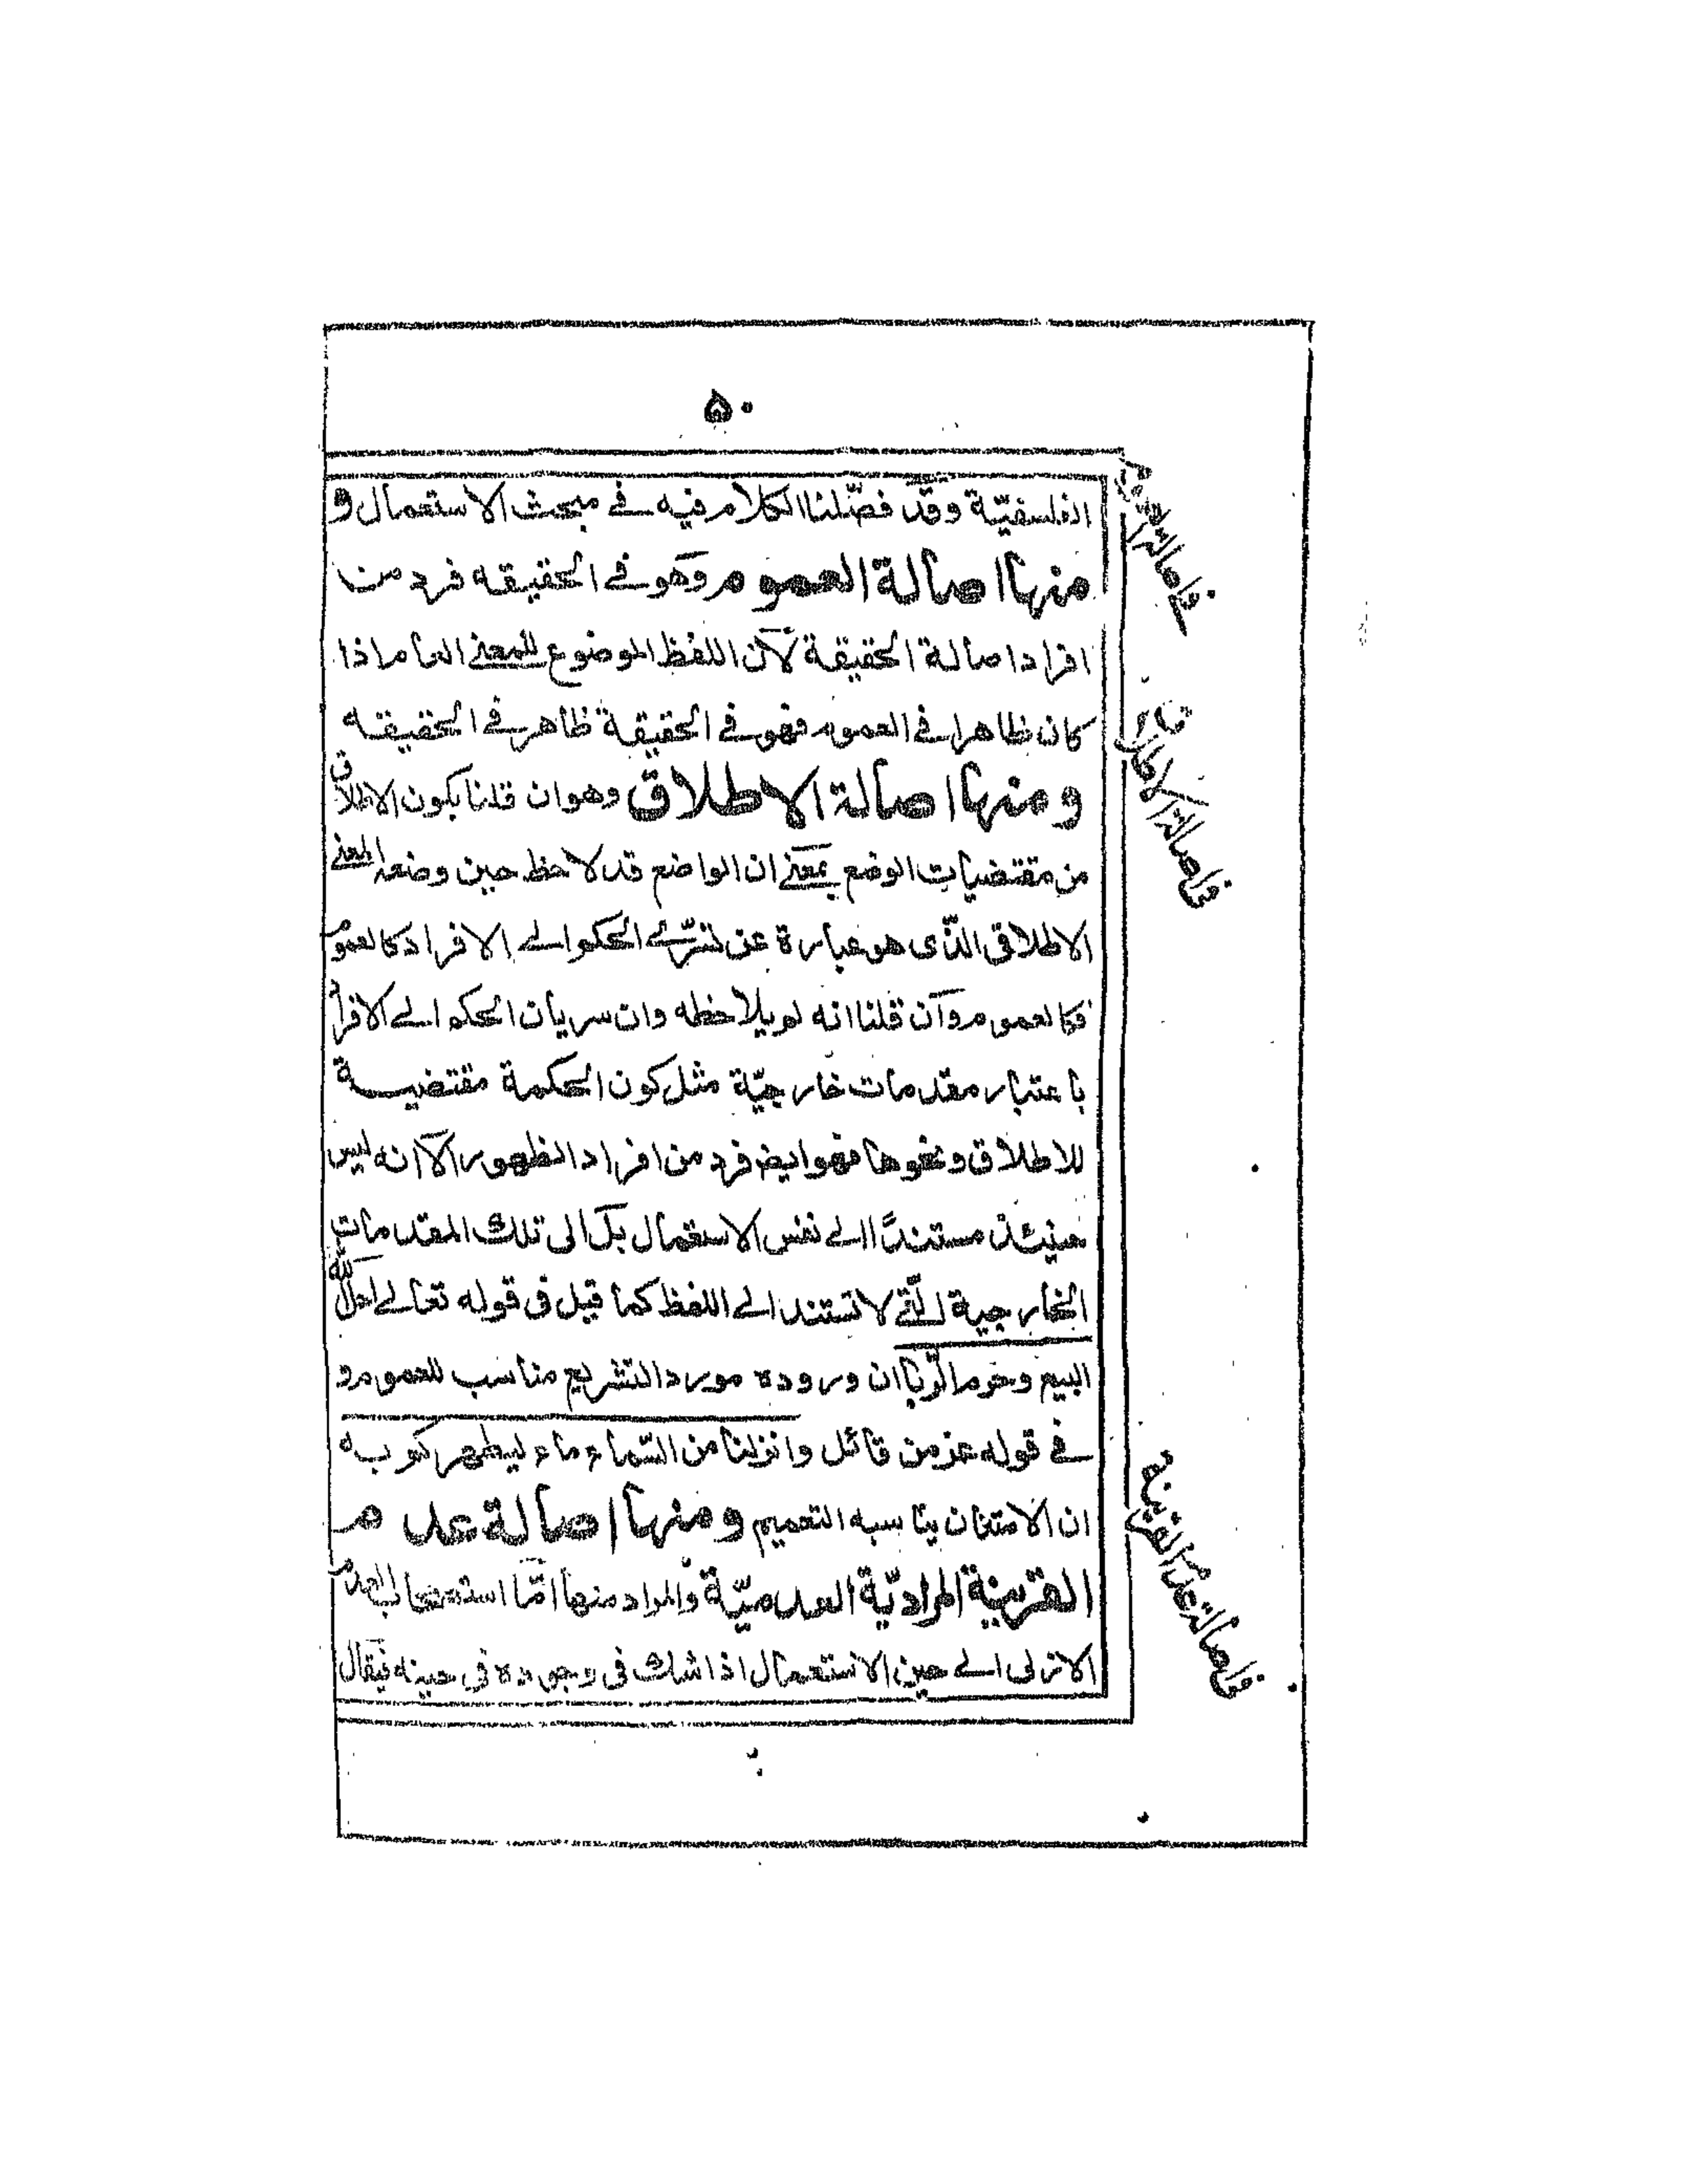 ۵۰
الفلسفيّة وقد فصّلنا الكلام فيه في مبحث الاستعمال و
منها اصالة العموم وهو في الحقيقه فرد من
افراد اصالة الحقيقة لان اللفظ الموضوع للمعنى العام اذا
كان ظاهرا في العموم فهو في الحقيقة ظاهر في الحقيقه
ومنها اصالة الاطلاق وهو ان قلنا بكون الاطلاق
من مقتضيات الوضع بمعنى ان الواضع قد لاحظ حين وضعه المعنى
الاطلاقى الذّى هو عبارة عن تسرّى الحكم الى الافراد كالعموم
فكالعموم وان قلنا انه لم يلاحظه وان سريان الحكم الى الافراد
باعتبار مقدمات خارجيّة مثل كون الحكمة مقتضية
للاطلاق ونحوها فهو ايض فرد من افراد الظهور الا انه ليس
حينئذ مستندًا الى نفس الاستعمال بل الى تلك المقدمات
الخارجية الّتى لا تستند الى اللفظ كما قيل فى قوله تعالى احل الله
البيع وحرم الرّبا ان وروده مورد التشريع مناسب للعموم و
في قوله عز من قائل وانزلنا من السّماء ماء ليطهركم به
ان الامتنان يناسبه التعميم ومنها اصالة عدم
القرينة المراديّة العدميّة والمراد منها امّا استصحاب العدم
الازلى الى حين الاستعمال اذا شك فى وجوده فى حينه فيقال
في اصالة
في اصالة الاطلاق
في اصالة عدم القرينة